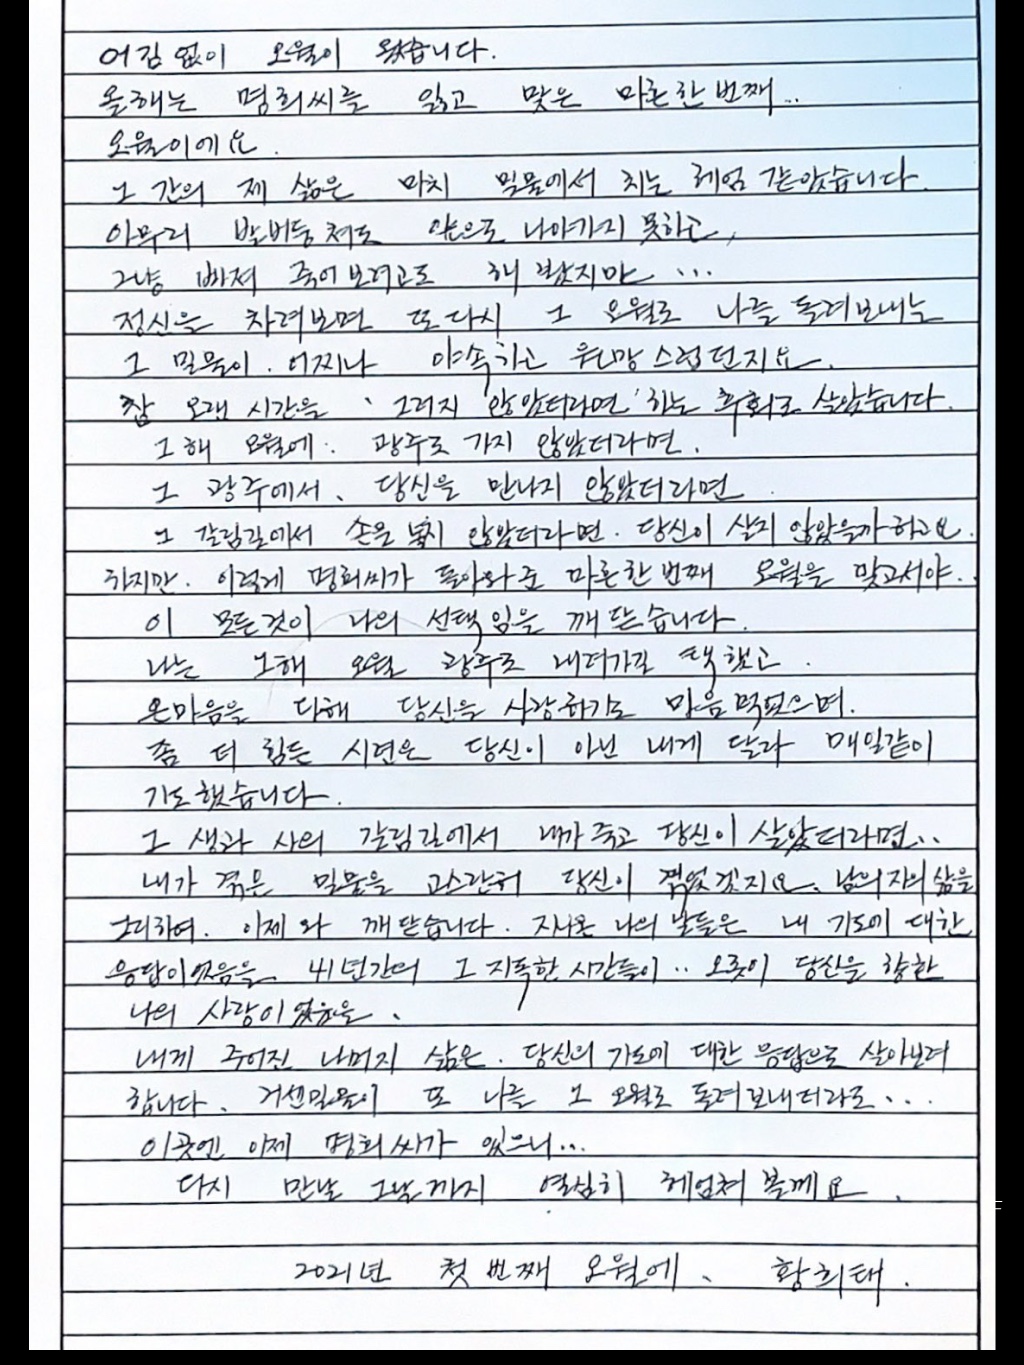 어김없이 오월이 왔습니다.
올해는 명희씨를 잃고 맞은 마흔한번째..
오월이에요.
그 간의 제 삶은 마치 밀물에서 치는 헤엄 같았습니다.
아무리 발버둥쳐도 앞으로 나아가지 못하고,
그냥 빠져 죽어보려고도 해 봤지만 ...
정신을 차려보면 또다시 그 오월로 나를 돌려보내는
그 밀물이. 어찌나 야속하고 원망스럽던지요.
참 오랜 시간을 '그러지 않았더라면' 하는 후회로 살았습니다.
그해 오월에. 광주로 가지 않았더라면.
그 광주에서. 당신을 만나지 않았더라면.
그 갈림길에서 손을 놓지 않았더라면. 당신이 살지 않았을까하고요.
하지만. 이렇게 명희씨가 돌아와준 마흔한번째 오월을 맞고서야.
이 모든것이 나의 선택임을 깨닫습니다.
나는 그해 오월 광주로 내려가길 택했고.
온마음을 다해 당신을 사랑하기로 마음먹었으며.
좀 더 힘든 시련은 당신이 아닌 내게 달라 매일같이
기도했습니다.
그 생과 사의 갈림길에서 내가 죽고 당신이 살았더라면..
내가 겪은 밀물을 고스란히 당신이 겪었겠지요. 남은자의 삶을
그리하여. 이제와 깨닫습니다. 지나온 나의 날들은 내 기도에 대한
응답이었음을. 41년간의 그 지독한 시간들이.. 오롯이 당신을 향한
나의 사랑이었음을.
내게 주어진 나머지 삶은. 당신의 기도에 대한 응답으로 살아보려
합니다. 거센밀물이 또 나를 그 오월로 돌려보내더라도...
이곳엔 이제 명희씨가 있으니...
다시 만날 그날까지 열심히 헤엄쳐볼께요.
2021년 첫번째 오월에. 황희태.